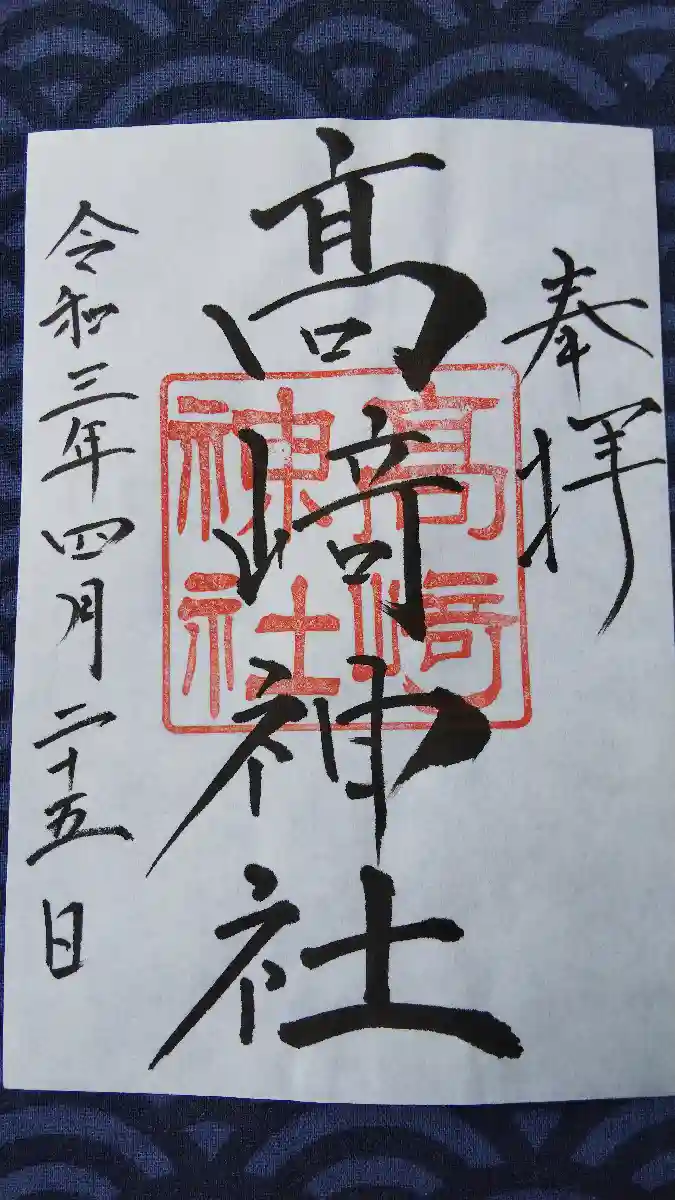 奉拝
高﨑神社
高﨑
神社
令和三年四月二十五日